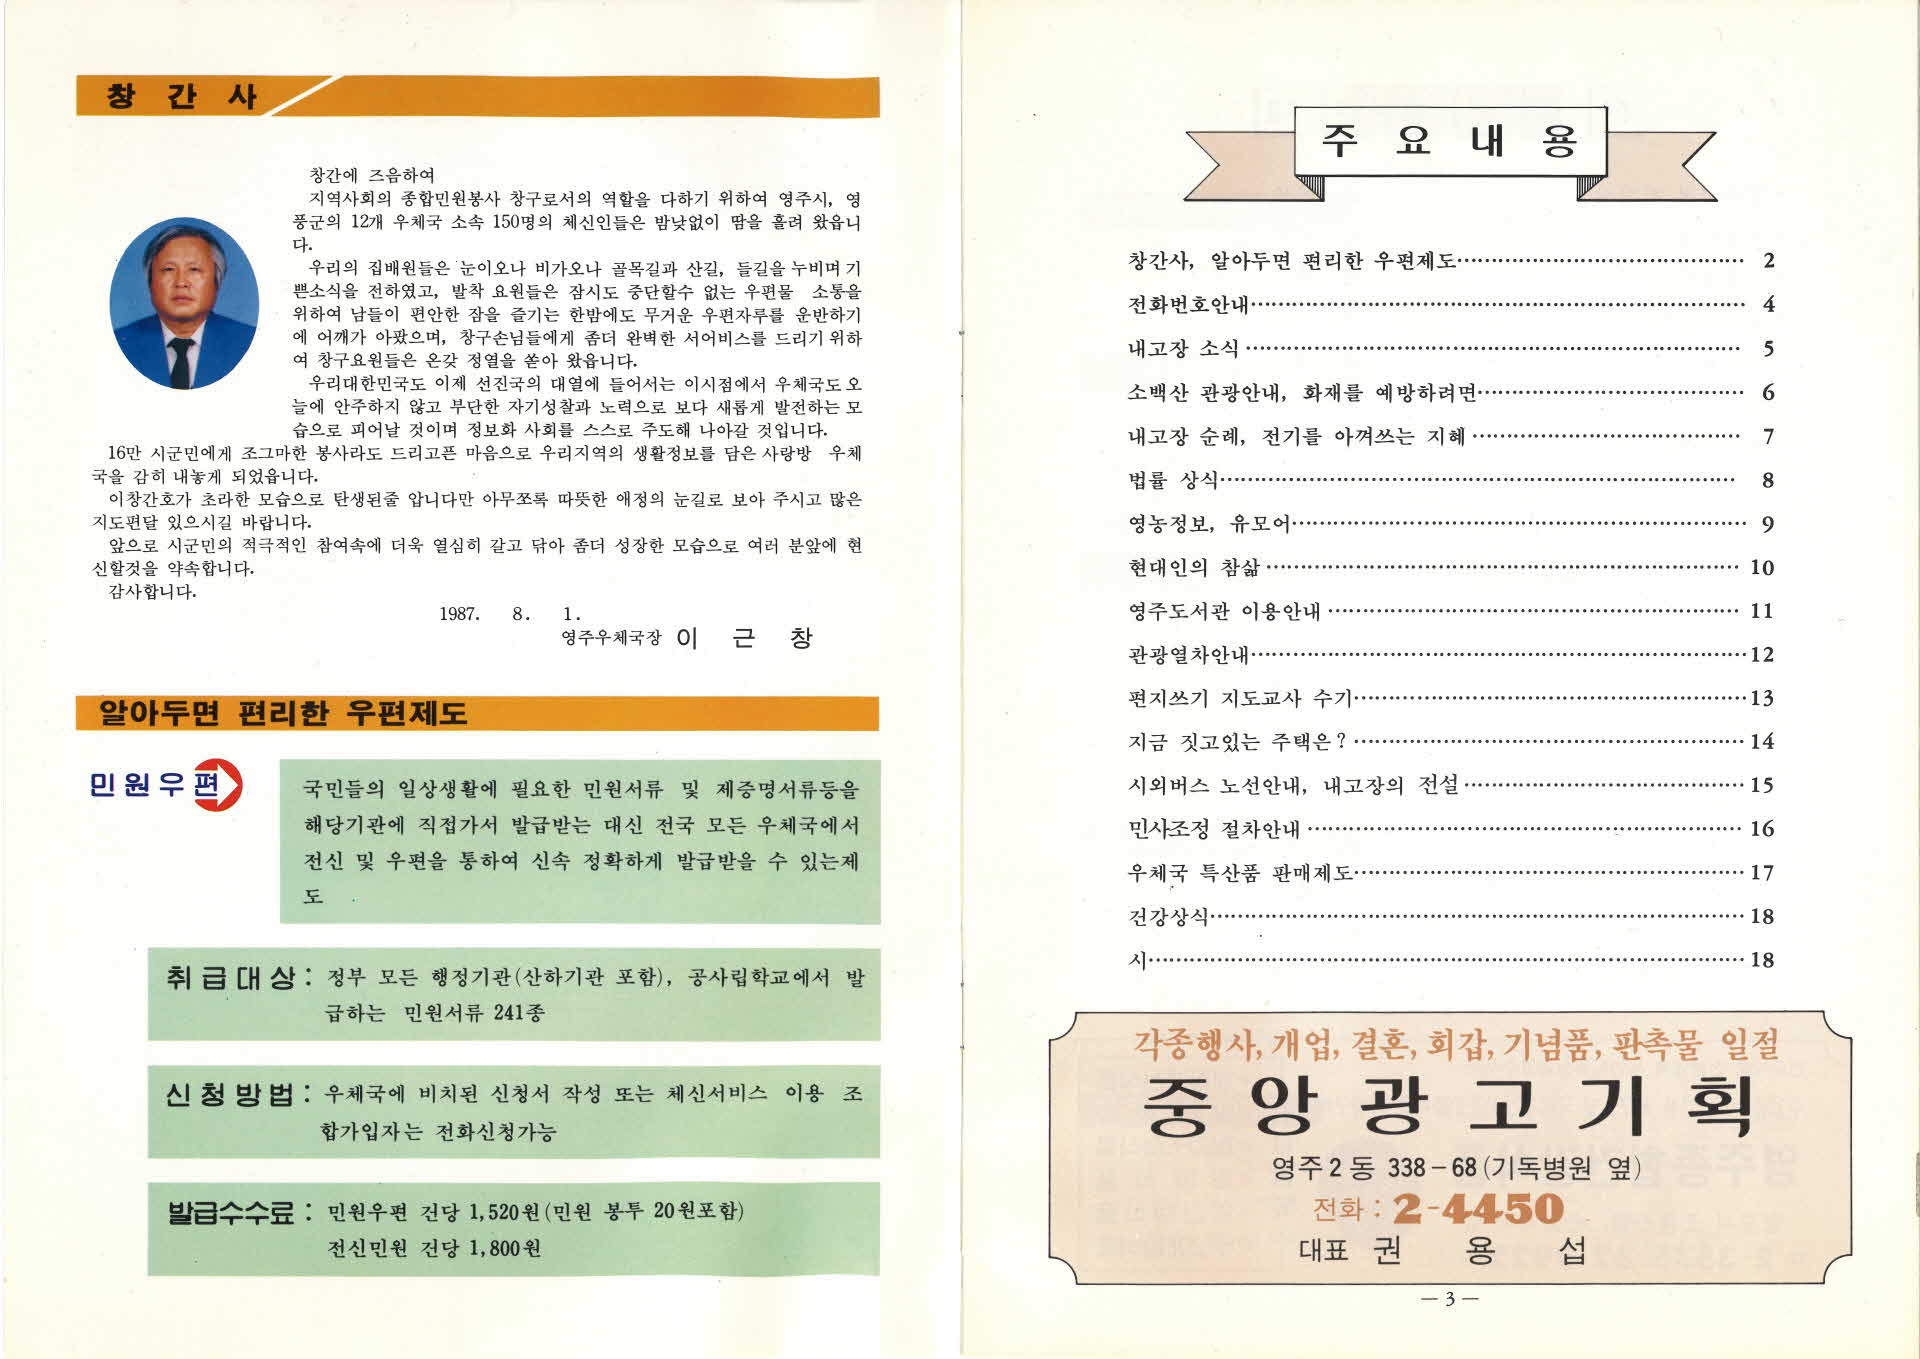 창 간 사
창간에 즈음하여
지역사회의 종합민원봉사 창구로서의 역할을 다하기 위하여 영주시, 영
풍군의 12개 우체국 소속 150명의 체신인들은 밤낮없이 땀을 흘려 왔읍니
다.
우리의 집배원들은 눈이오나 비가오나 골목길과 산길, 들길을 누비며 기
쁜소식을 전하였고, 발착 요원들은 잠시도 중단할수 없는 우편물 소통을
위하여 남들이 편안한 잠을 즐기는 한밤에도 무거운 우편자루를 운반하기
에 어깨가 아팠으며, 창구손님들에게 좀더 완벽한 서어비스를 드리기 위하
여 창구요원들은 온갖 정열을 쏟아 왔읍니다.
우리대한민국도 이제 선진국의 대열에 들어서는 이시점에서 우체국도 오
늘에 안주하지 않고 부단한 자기성찰과 노력으로 보다 새롭게 발전하는 모
습으로 피어날 것이며 정보화 사회를 스스로 주도해 나아갈 것입니다.
16만 시군민에게 조그마한 봉사라도 드리고픈 마음으로 우리지역의 생활정보를 담은 사랑방 우체
국을 감히 내놓게 되었읍니다.
이창간호가 초라한 모습으로 탄생된줄 압니다만 아무쪼록 따뜻한 애정의 눈길로 보아 주시고 많은
지도편달 있으시길 바랍니다.
앞으로 시군민의 적극적인 참여속에 더욱 열심히 갈고 닦아 좀더 성장한 모습으로 여러 분앞에 현
신할것을 약속합니다.
감사합니다.
1987. 8. 1.
영주우체국장 이 근 창
알아두면 편리한 우편제도
민원우편
국민들의 일상생활에 필요한 민원서류 및 제증명서류등을
해당기관에 직접가서 발급받는 대신 전국 모든 우체국에서
전신 및 우편을 통하여 신속 정확하게 발급받을 수 있는제
도
취급대상 : 정부 모든 행정기관(산하기관 포함), 공사립학교에서 발
급하는 민원서류 241종
신청방법 : 우체국에 비치된 신청서 작성 또는 체신서비스 이용 조
합가입자는 전화신청가능
발급수수료 : 민원우편 건당 1,520원(민원 봉투 20원포함)
전신민원 건당 1,800원
주 요 내 용
창간사, 알아두면 편리한 우편제도 ········ 2
전화번호안내 ········ 4
내고장 소식 ········ 5
소백산 관광안내, 화재를 예방하려면 ········ 6
내고장 순례, 전기를 아껴쓰는 지혜 ········ 7
법률 상식 ········ 8
영농정보, 유모어 ········ 9
현대인의 참삶 ········ 10
영주도서관 이용안내 ········ 11
관광열차안내 ········ 12
편지쓰기 지도교사 수기 ········ 13
지금 짓고있는 주택은? ········ 14
시외버스 노선안내, 내고장의 전설 ········ 15
민사조정 절차안내 ········ 16
우체국 특산품 판매제도 ········ 17
건강상식 ········ 18
시 ········ 18
각종행사, 개업, 결혼, 회갑, 기념품, 판촉물 일절
중앙광고기획
영주2동 338-68(기독병원 옆)
전화 : 2-4450
대표 권 용 섭
— 3 —